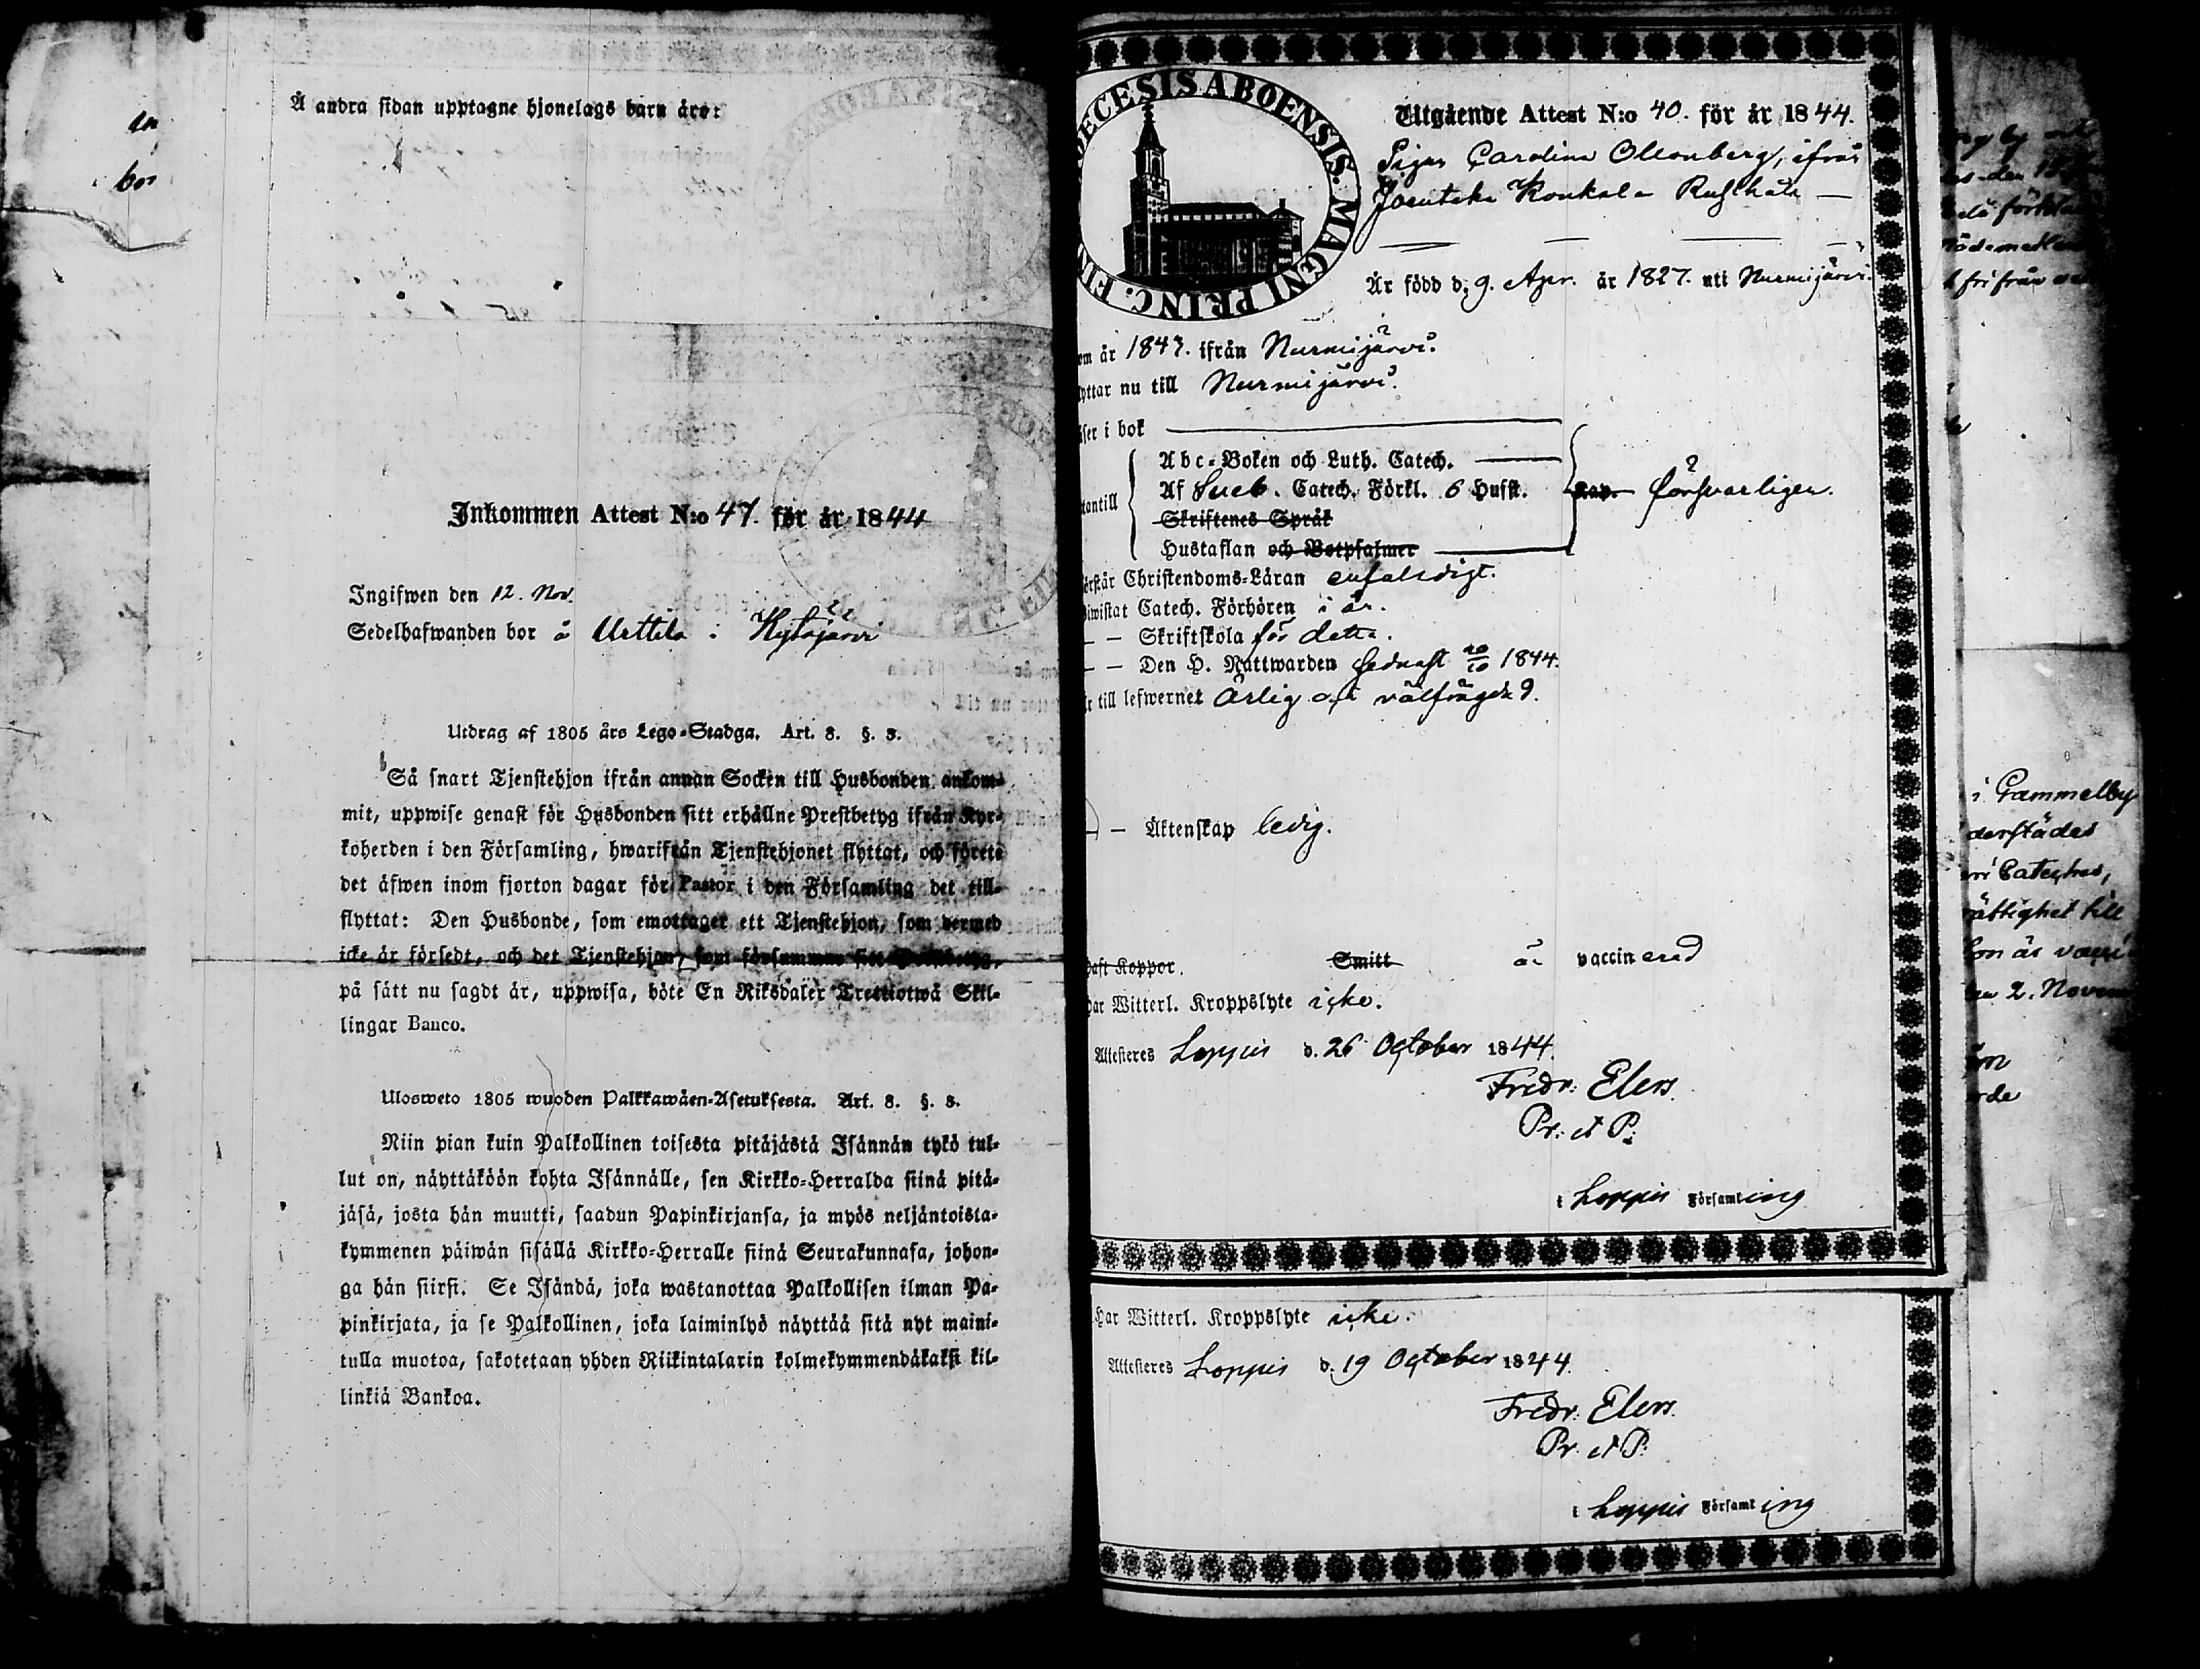 Å andra sidan upptagne hjonelags barn äro:
Inkommen Attest N:o 47. för år 1844
Ingifwen den 12. Nov.
Sedelhafwanden bor å Urttila i Kytäjärvi
Utdrag af 1805 års Lego-Stadga. Art. 8. §. 3.
Så snart Tjenstehjon ifrån annan Socken till Husbonden ankom-
mit, uppwise genast för Husbonden sitt erhållne Prestbetyg ifrån Kyr-
koherden i den Församling, hwarifrån Tjenstehjonet flyttat, och förete
det äfwen inom fjorton dagar för Pastor i den Församling det till-
flyttat: Den Husbonde, som emottager ett Tjenstehjon, som dermed
icke är försedt, och det Tjenstehjon, som försummar sitt Prestbetyg,
på sätt nu sagdt är, uppwisa, böte En Riksdaler Trettiotwå Skil-
lingar Banco.
Ulosweto 1805 wuoden Palkkawäen-Asetuksesta. Art. 8. §. 3.
Niin pian kuin Palkollinen toisesta pitäjästä Isännän tykö tul-
lut on, näyttäköön kohta Isännälle, sen Kirkko-Herralda siinä pitä-
jäsä, josta hän muutti, saadun Papinkirjansa, ja myös neljäntoista-
kymmenen päiwän sisällä Kirkko-Herralle siinä Seurakunnasa, johon-
ga hän siirsi. Se Isändä, joka wastanottaa Palkollisen ilman Pa-
pinkirjata, ja se Palkollinen, joka laiminlyö näyttää sitä nyt maini-
tulla muotoa, sakotetaan yhden Riikintalarin kolmekymmendäkaksi kil-
linkiä Bankoa.
DECESIS ABOENSIS. MAGNI PRINC. FIN
Utgående Attest N:o 40. för år 1844.
Pigan Carolina Ollonberg, ifrån
Joentaka Konkala Rusthåll —
Är född d. 9. Apr. år 1827. uti Nurmijärvi.
om år 1843. ifrån Nurmijärvi.
lyttar nu till Nurmijärvi.
äser i bok
Abc-Boken och Luth. Catech.
Af Sueb. Catech. Förkl. 6 Hufst. Kap. försvarligen.
tantill
Skriftenes Språk
Hustaflan och Botpsalmer
örstår Christendoms-Läran enfaldigt.
iwistat Catech. Förhören i år.
— — Skriftskola för detta.
— — Den H. Nattwarden sednast 20/10 1844.
r till lefwernet ärlig och välfrägdad.
— Äktenskap ledig.
haft Koppor. Smitt är vaccinerad
har Witterl. Kroppslyte icke.
Attesteres Loppis d. 26 October 1844.
Fredr: Elers.
Pr: et P:
i Loppis Församling
Har Witterl. Kroppslyte icke.
Attesteres Loppis d. 19 October 1844.
Fredr: Elers.
Pr. et P:
i Loppis Församling
i Gammelby
derstädes
Cateches,
rättighet till
hon är vacci
2. Novem